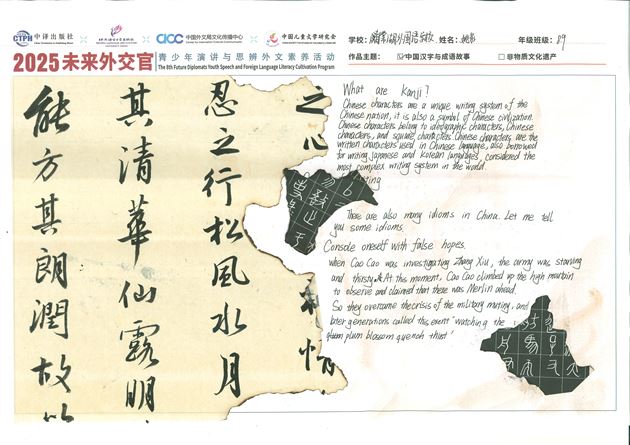 CTPH 中译出版社
CICC 中国外文局文化传播中心
中国儿童文学研究会
2025未来外交官
青少年演讲与思辨外文素养活动
The 8th Future Diplomats Youth Speech and Foreign Language Literacy Cultivation Program
学校: 外国语学校 姓名: 年级班级: 89
作品主题: ☑中国汉字与成语故事 □非物质文化遗产
之心
忍之行松風水月
其清華仙露明
能方其朗潤故
What are Kanji?
Chinese characters are a unique writing system of the
Chinese nation, it is also a symbol of Chinese civilization.
Chinese characters belong to ideographic characters, Chinese
characters, and square characters. Chinese characters are the
written characters used in Chinese language, also borrowed
for writing Japanese and Korean languages, considered the
most complex writing system in the world.
There are also many idioms in China. Let me tell
you some idioms.
Console oneself with false hopes.
When Cao Cao was investigating Zhang Xiu, the army was starving
and thirsty. At this moment, Cao Cao climbed up the high mountain
to observe and claimed that there was Merlin ahead.
So they overcame the crisis of the military mutiny, and
later generations called this event "watching the
plum blossom quench thust'